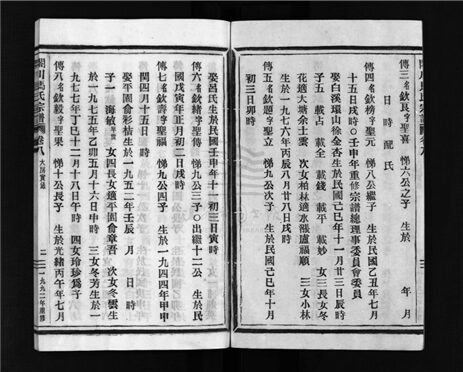 傳三名欽長字聖喜 悌六公之子 生於 年 月
日時 配氏
傳四名欽榜字聖元 悌八公繼子 生於民國乙丑年七月
十五日戌時○壬申年重修宗譜總理事委員會委員
娶白溪環山徐金杏生於民國己巳年十一月廿三日辰時
子五 載占 載全 載錢 載平 載妙 女三長女冬
花適大塘余士雲 次女柏林適水漲盧福順 三女小林
生於一九七六年丙辰八月廿八日戌時
傳五名欽題字聖立 悌九公長子 生於民國己巳年十月
初三日卯時
娶呂氏生於民國壬申年十一初三日寅時
傳六名欽緒字聖傳 悌九公三子○出繼十二公 生於民
國戊寅年正月初二日戌時
傳七名欽壽字聖福 悌九公四子 生於一九四四年甲申
閏四月十五日 時
娶平園會彩桔生於一九五二年壬辰 月 日 時
子一 海敏 女四長女適不園會章吾 次女冬雲生
於一九七五年乙卯五月十六日申時 三女冬芳生於一
九七七年丁巳十二月十八日 時 四女玲珍爲子
傳八名欽毅字聖果 悌十公長子 生於光緒丙午年七月
宗譜 卷八 大房實蕃
二 一九九二年重修